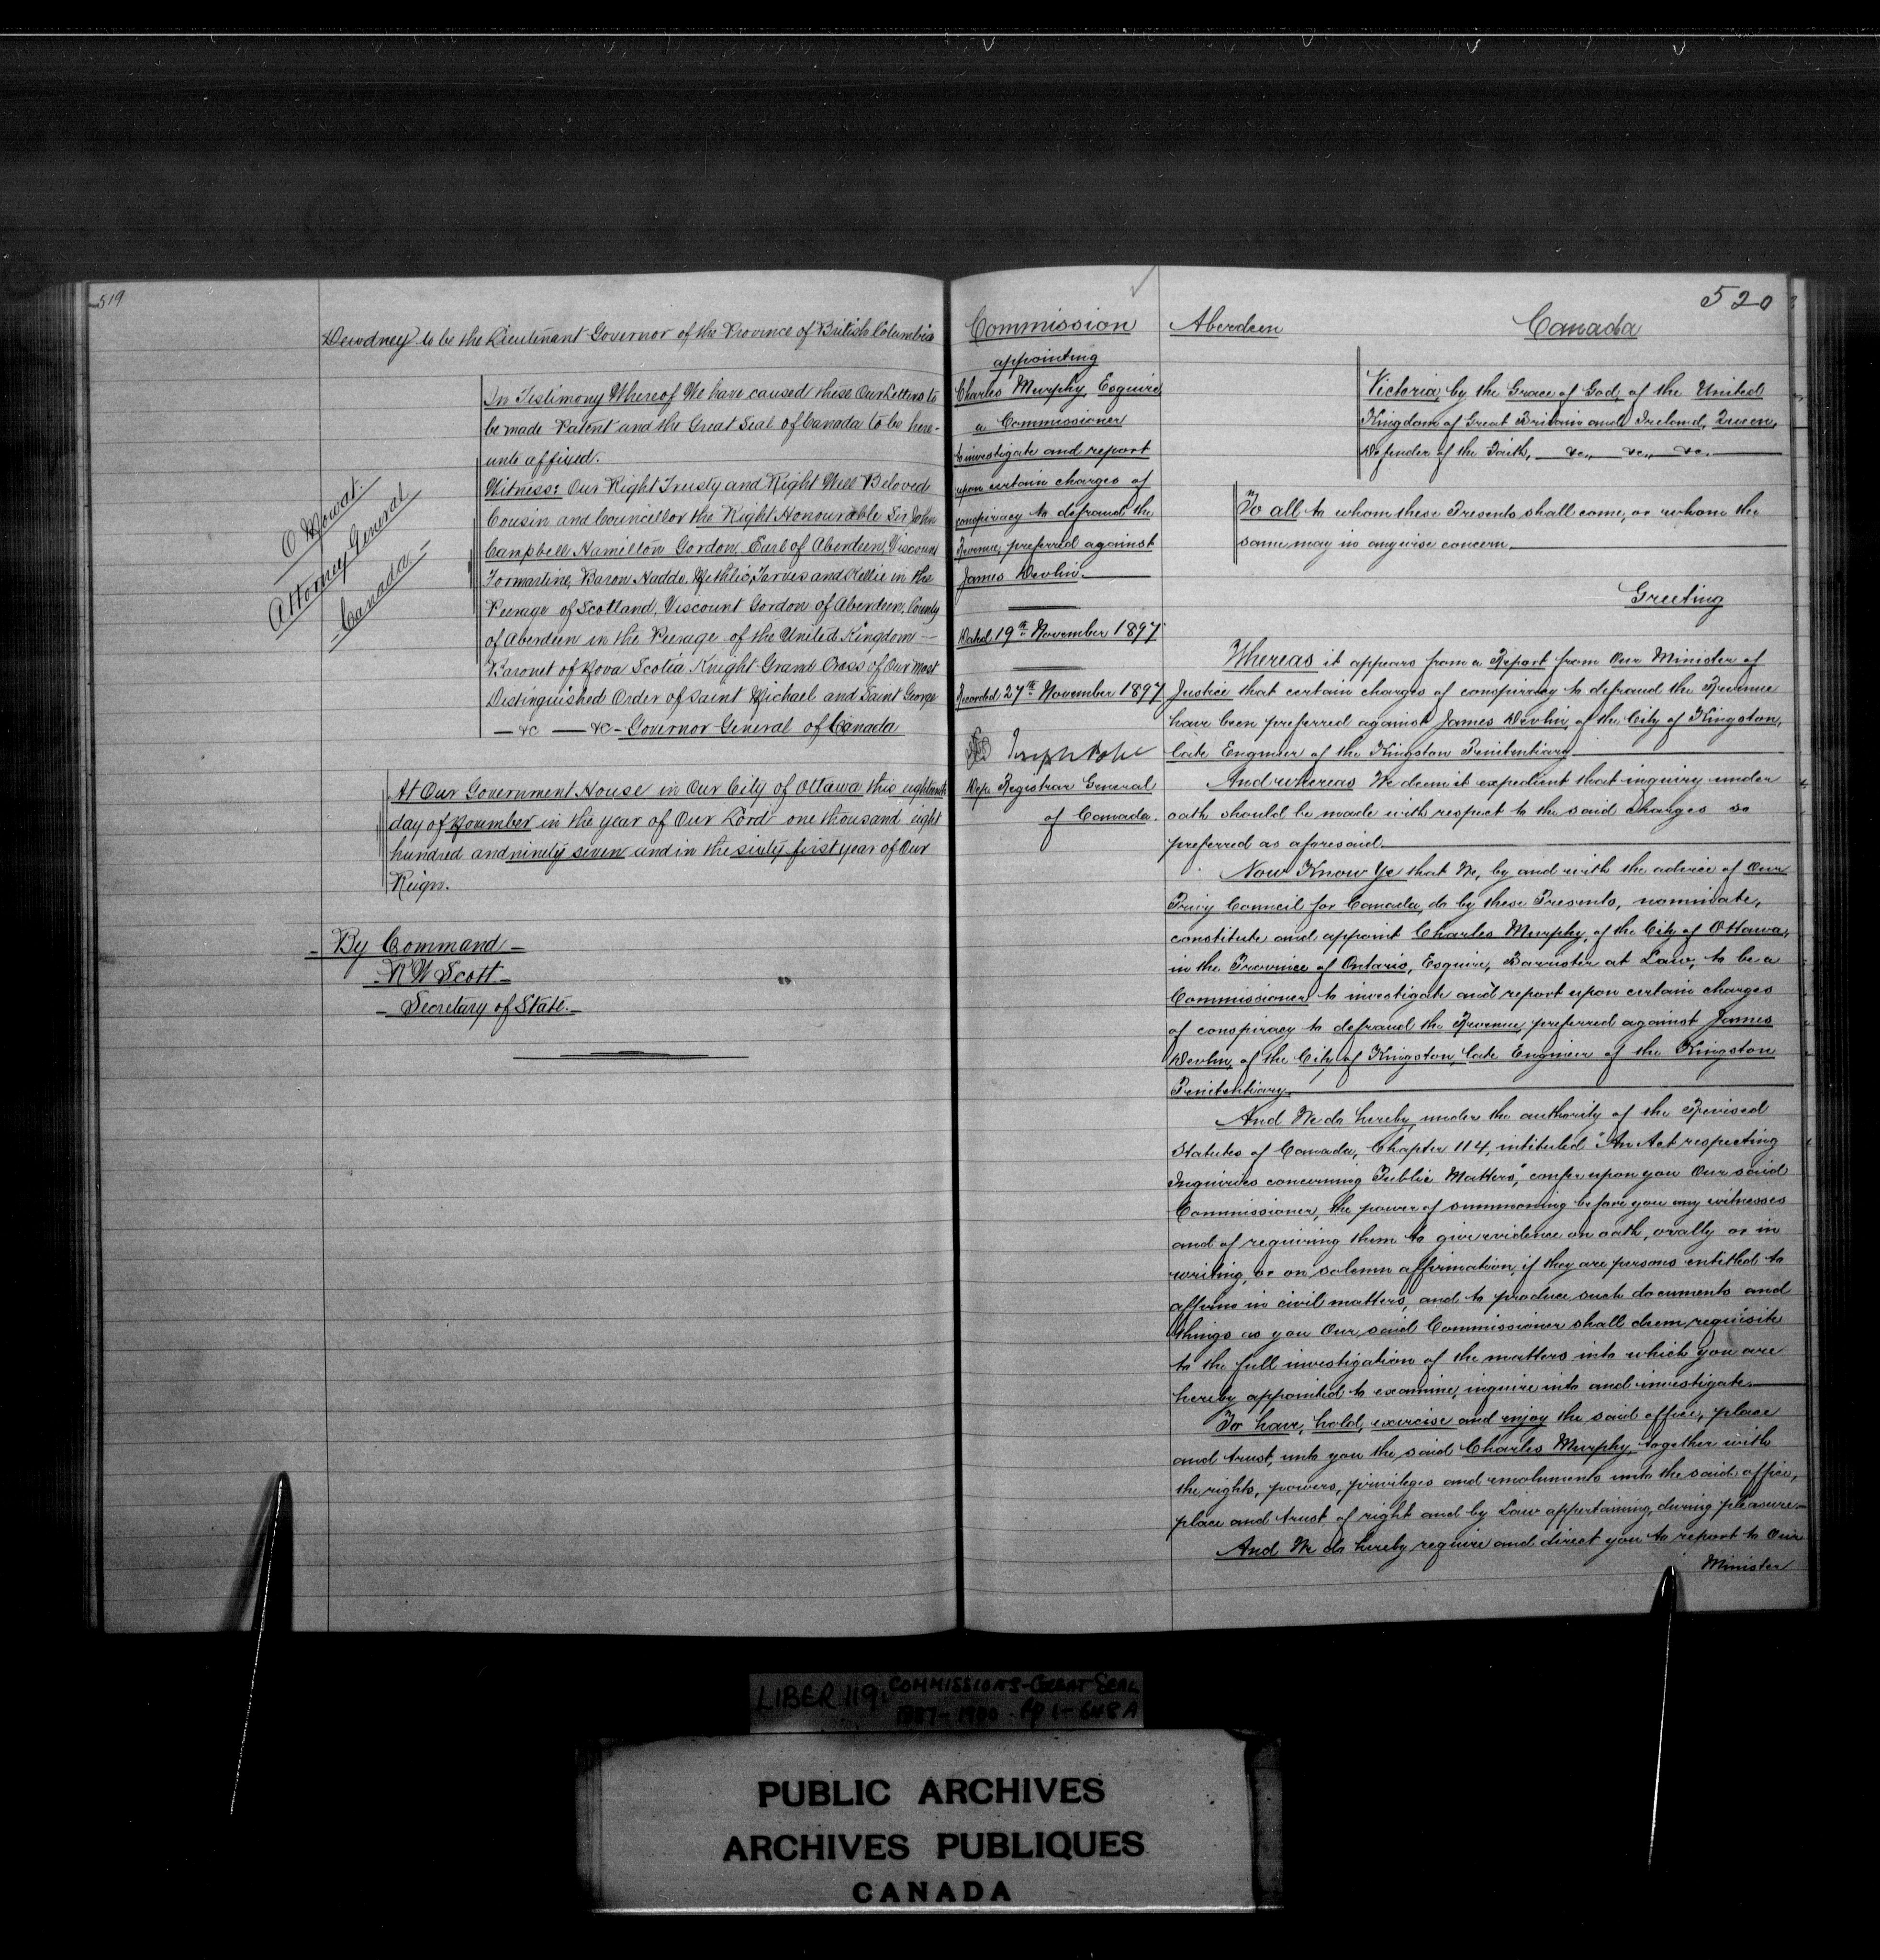 519
Dewdney to be the Lieutenant Governor of the Province of British Columbia
In Testimony Whereof We have caused these Our Letters to
be made Patent and the Great Seal of Canada to be here-
unto affixed.
Witness: Our Right Trusty and Right Well Beloved
Cousin and Councillor the Right Honourable Sir John
Campbell Hamilton Gordon, Earl of Aberdeen, Viscount
Formartine, Baron Haddo, Methlic, Tarves and Kellie in the
Peerage of Scotland, Viscount Gordon of Aberdeen, County
of Aberdeen in the Peerage of the United Kingdom —
Baronet of Nova Scotia Knight Grand Cross of Our most
Distinguished Order of Saint Michael and Saint George
— &c — &c - Governor General of Canada
O Mowat.
Attorney General
Canada -
At Our Government House in Our City of Ottawa this eighteenth
day of November in the year of Our Lord one thousand eight
hundred and ninety seven and in the sixty first year of Our
Reign.
- By Command -
- R W Scott -
- Secretary of State. -
520
Commission
appointing
Charles Murphy, Esquire,
a Commissioner
to investigate and report
upon certain charges of
conspiracy to defraud the
Revenue, preferred against
James Devlin.
Dated 19th November 1897
Recorded 27th November 1897
Joseph Pope
Dep. Registrar General
of Canada.
Aberdeen
Canada
Victoria, by the Grace of God, of the United
Kingdom of Great Britain and Ireland, Queen,
Defender of the Faith, — &c., — &c., — &c. —
To all to whom these Presents shall come, or whom the
same may in anywise concern —
Greeting
Whereas it appears from a Report from Our Minister of
Justice that certain charges of conspiracy to defraud the Revenue
have been preferred against James Devlin, of the City of Kingston,
late Engineer of the Kingston Penitentiary —
And whereas We deem it expedient that inquiry under
oath should be made with respect to the said charges so
preferred as aforesaid. —
Now Know Ye that We, by and with the advice of Our
Privy Council for Canada, do by these Presents, nominate,
constitute and appoint Charles Murphy, of the City of Ottawa,
in the Province of Ontario, Esquire, Barrister at Law, to be a
Commissioner to investigate and report upon certain charges
of conspiracy to defraud the Revenue, preferred against James
Devlin, of the City of Kingston, late Engineer of the Kingston
Penitentiary. —
And We do hereby, under the authority of the Revised
Statutes of Canada, Chapter 114, intituled "An Act respecting
Inquiries concerning Public Matters," confer upon you Our said
Commissioner, the power of summoning before you any witnesses
and of requiring them to give evidence on oath, orally or in
writing, or on solemn affirmation, if they are persons entitled to
affirm in civil matters, and to produce such documents and
things as you Our said Commissioner shall deem requisite
to the full investigation of the matters into which you are
hereby appointed to examine, inquire into and investigate. —
To have, hold, exercise and enjoy the said office, place
and trust, unto you the said Charles Murphy, together with
the rights, powers, privileges and emoluments unto the said office,
place and trust, of right and by Law appertaining, during pleasure —
And We do hereby require and direct you to report to Our
Minister
LIBER 119: COMMISSIONS - GREAT SEAL
1887 - 1900 - pp 1 - 648A
PUBLIC ARCHIVES
ARCHIVES PUBLIQUES
CANADA